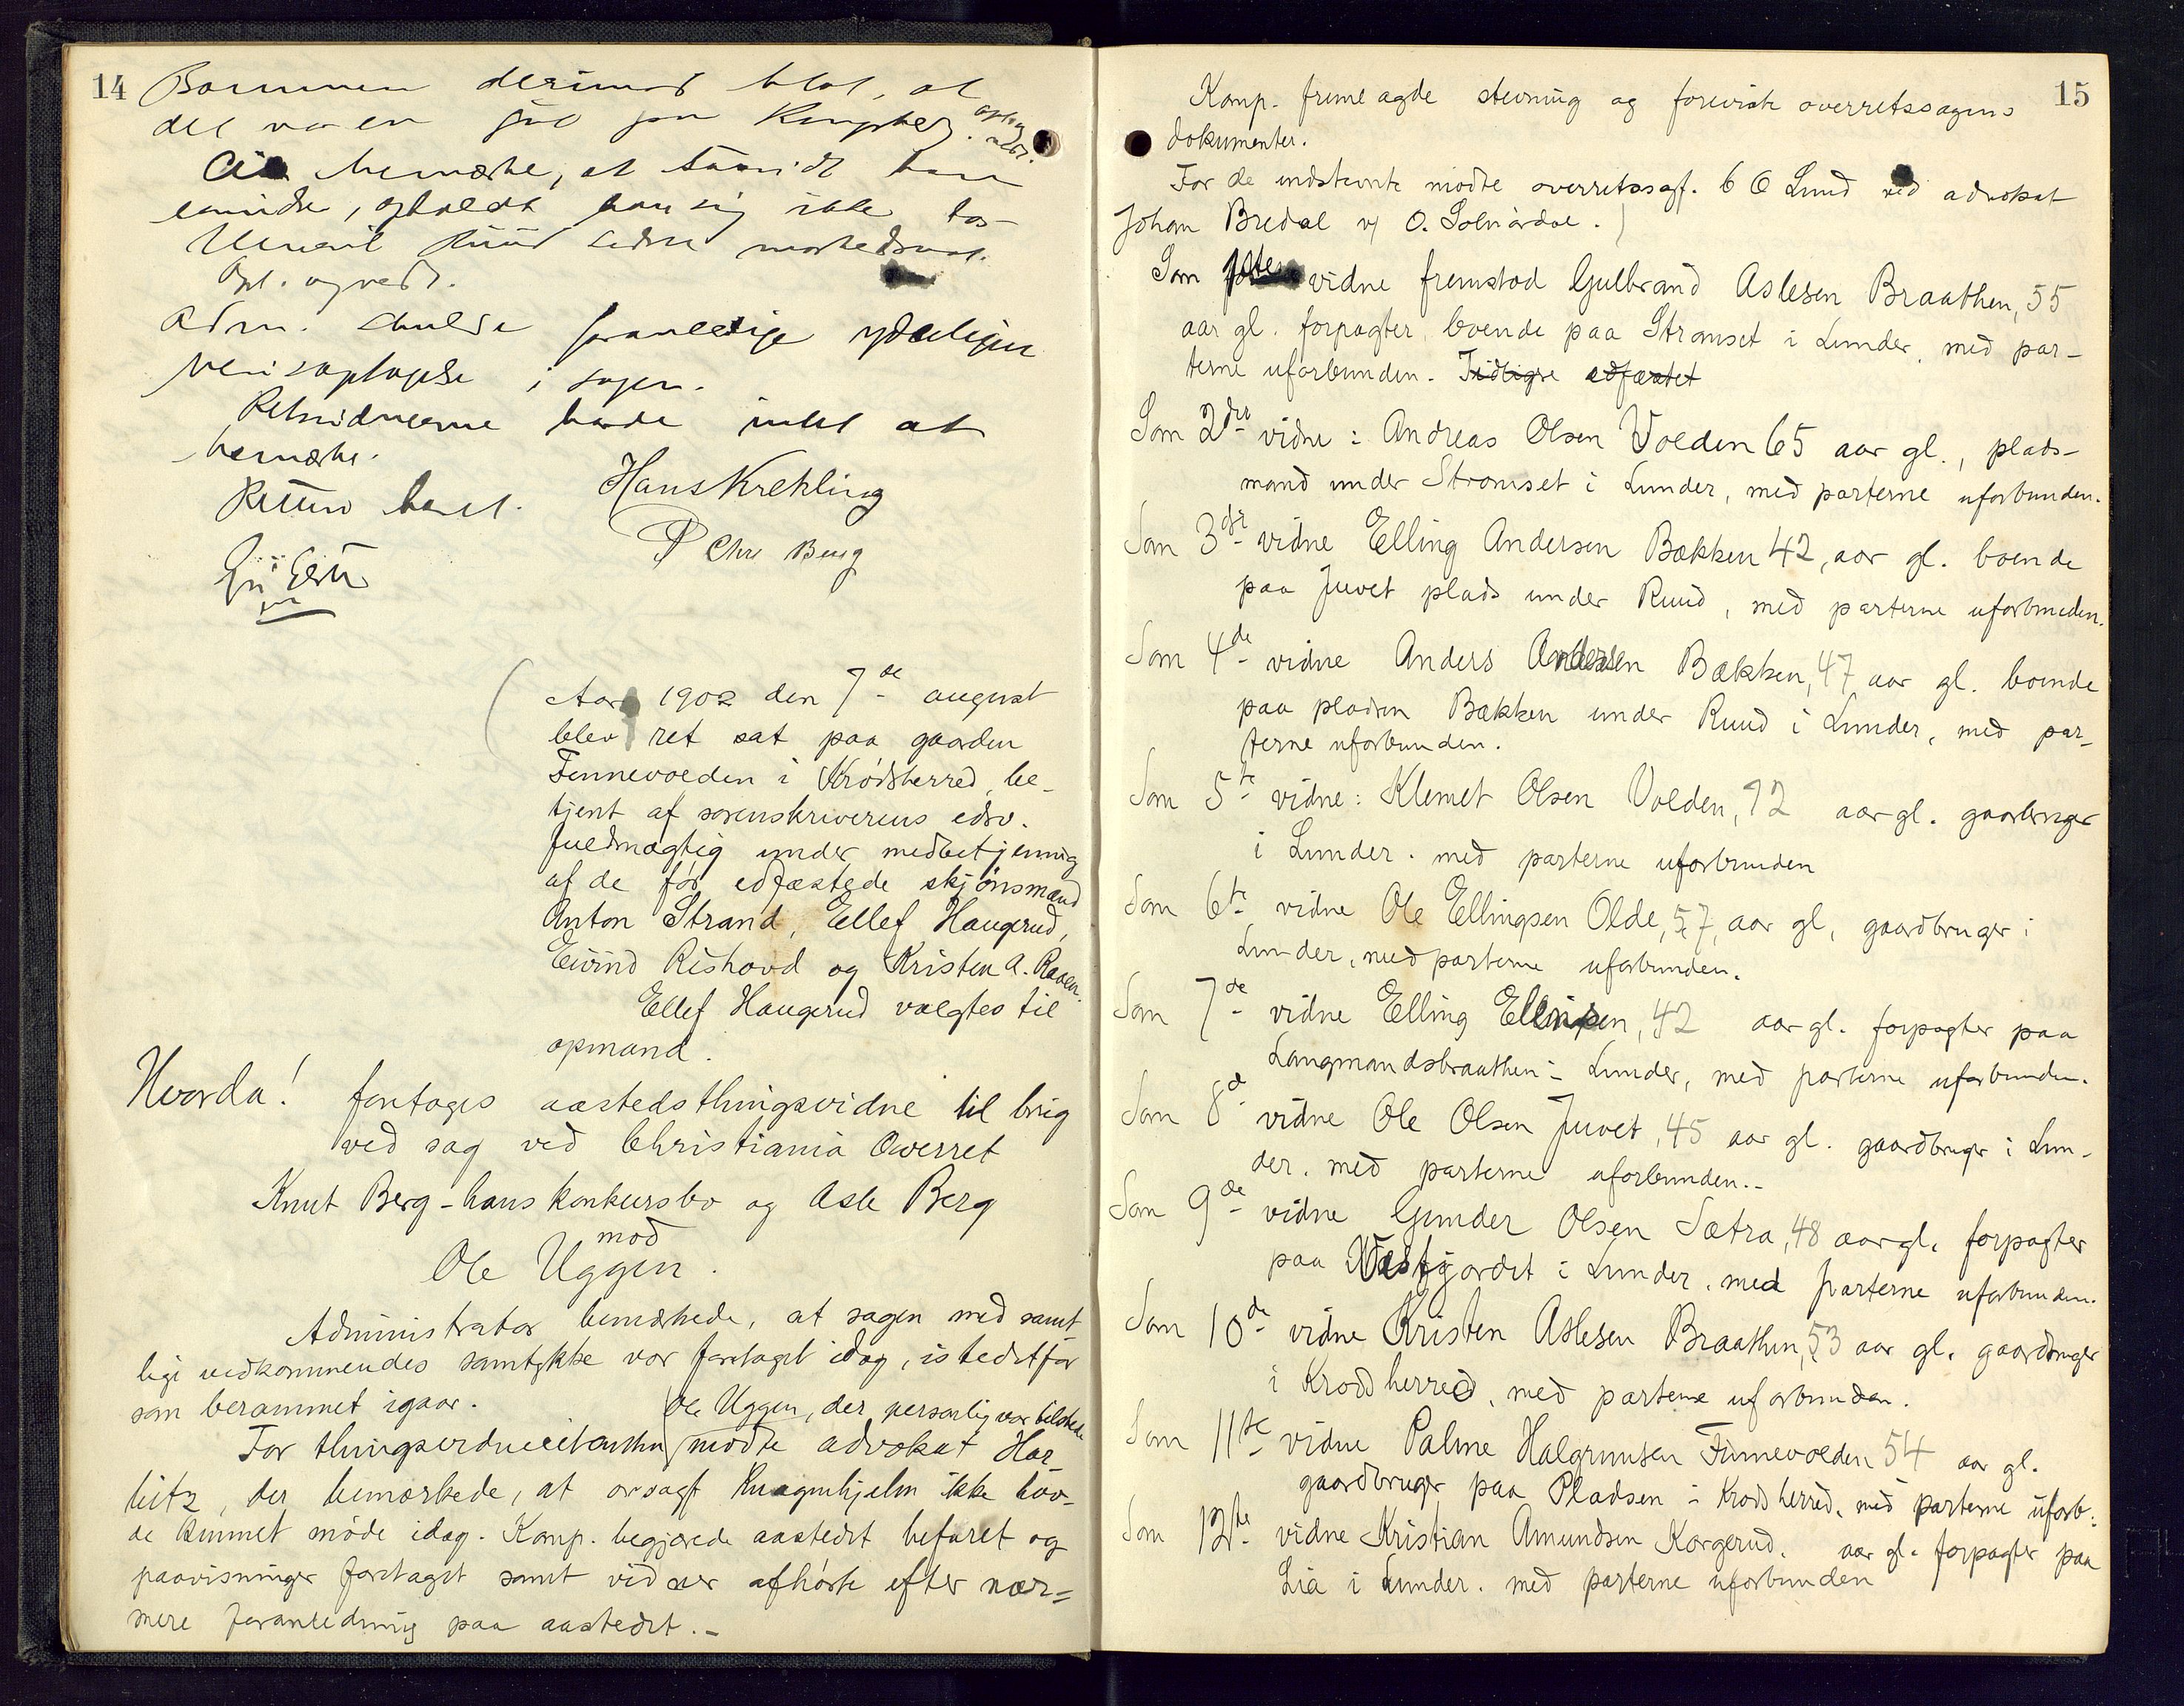 14
det var en paa
Ci bemærke, at saavidt han
erindre, opholdt han sig ikke hos
Ruud sidste markedsnat.
Opl. og vedt.
Adm. skulde foranledige ydeligere
bevisoptagelse i sagen.
Retsvidnerne havde intet at
bemærke.
Retten hævet.
Hans Krekling
P Chr Berg
Aar 1902 den 7de august
blev ret sat paa gaarden
Finnevolden i Krødsherred, be-
tjent af sorenskriverens edsv.
fuldmægtig under medbetjening
af de før edfæstede skjønsmænd
Anton Strand, Ellef Haugerud,
Eivind Rishovd og Kristen A. Raaen.
Ellef Haugerud valgtes til
opmand.
Hvorda! foretoges aastedsthingsvidne til brug
ved sag ved Christiania Overret
Knut Berg - hans konkursbo og Asle Berg
mod
Ole Uggen.
Administrator bemærkede, at sagen med samt-
lige vedkommendes samtykke var foretaget idag, istedetfor
som berammet igaar.
Ole Uggen, der personlig var tilstede
For thingsvidnecitanten mødte advokat Har-
bitz, der bemærkede, at orsagf Knagenhjelm ikke hav-
de kunnet møde idag. Komp. begjærede aastedet befaret og
paavisninger foretaget samt vidner afhørte efter nær-
mere foranledning paa aastedet.-
15
Komp. fremlagde stevning og foreviste overretssagens
dokumenter.
For de indstevnte mødte overretssagf. C Lund ved advokat
Johan Bredal v/ O. Solnørdal.
Som 1ste vidne fremstod Gulbrand Aslesen Braathen, 55
aar gl. forpagter, boende paa Strømset i Lunder, med par-
terne uforbunden. Tidligere edfæstet
Som 2det vidne: Andreas Olsen Volden 65 aar gl., plads-
mand under Strømset i Lunder, med parterne uforbunden.
Som 3die vidne Elling Andersen Bækken 42, aar gl. boende
paa Juvet plads under Ruud, med parterne uforbunden.
Som 4de vidne Anders Andersen Bækken, 47 aar gl. boende
paa pladsen Bækken under Ruud i Lunder, med par-
terne uforbunden.
Som 5te vidne: Klemet Olsen Volden, 72 aar gl. gaarbruger
i Lunder. med parterne uforbunden
Som 6te vidne Ole Ellingsen Olde, 57, aar gl, gaardbruger i
Lunder, med parterne uforbunden.
Som 7de vidne Elling Ellingsen, 42 aar gl. forpagter paa
Langmandsbraathen i Lunder, med parterne uforbunden.
Som 8de vidne Ole Olsen Juvet, 45 aar gl. gaardbruger i Lun-
der. med parterne uforbunden.-
Som 9de vidne Gunder Olsen Sætra, 48 aar gl. forpagter
paa Vestjordet i Lunder. med parterne uforbunden.
Som 10de vidne Kristen Aslesen Braathen, 53 aar gl. gaardbruger
i Krødsherred, med parterne uforbunden.
Som 11te vidne Palme Halgrimsen Finnevolden 54 aar gl.
gaardbruger paa Pladsen i Krødsherred, med parterne uforb.
Som 12te vidne Kristian Amundsen Korgerud, aar gl. forpagter paa
Lia i Lunder. med parterne uforbunden